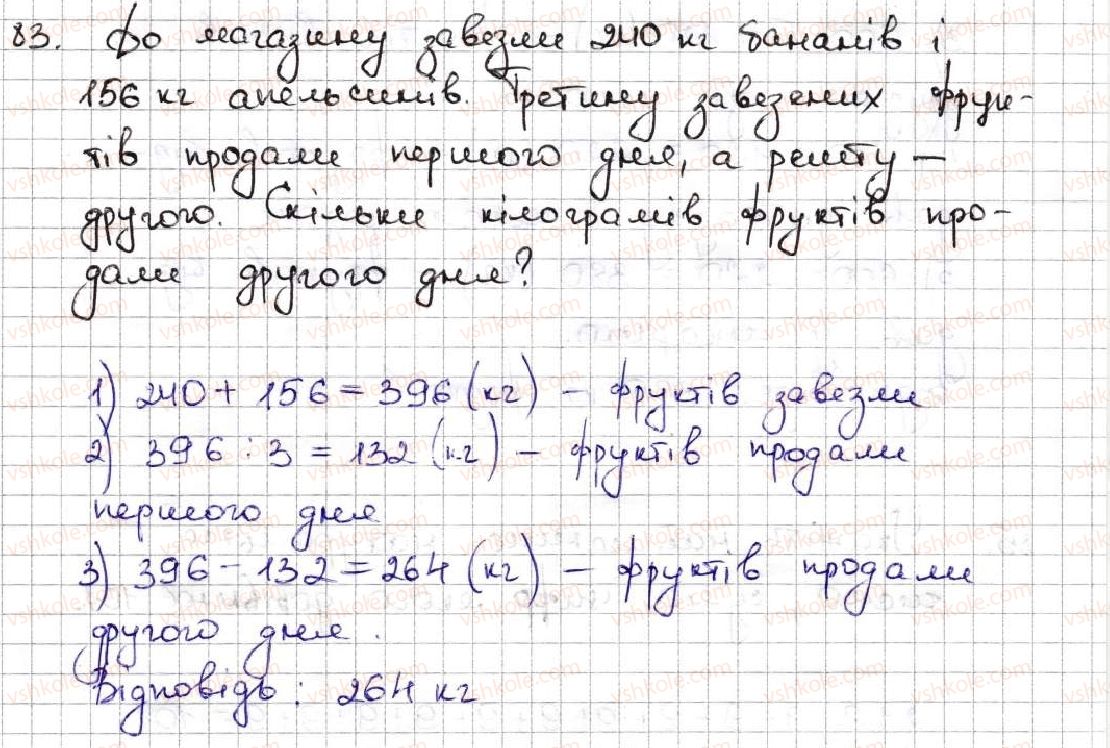 83. До магазину завезли 240 кг бананів і
156 кг апельсинів. Третину завезених фрук-
тів продали першого дня, а решту –
другого. Скільки кілограмів фруктів про-
дали другого дня?
1) 240 + 156 = 396 (кг) – фруктів завезли
2) 396 : 3 = 132 (кг) – фруктів продали
першого дня
3) 396 - 132 = 264 (кг) – фруктів продали
другого дня.
Відповідь: 264 кг